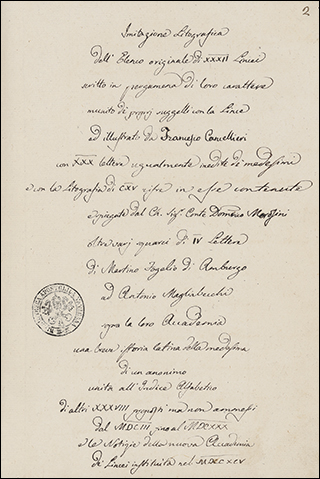 2
Imitazione Litografica
dell' Elenco originale di XXXII Lincei
scritto in pergamena di loro carattere
munito di proprj suggelli con la Lince
ed illustrato da Francesco Cancellieri
con XXX lettere ugualmente inedite de medesimi
e con la Litografia di CXV cifre in esse contenute
e spiegate dal Ch. Sig. Conte Domenico Morosini
oltra varj squarci di IV Lettere
di Martino Fogelio di Amburgo
ad Antonio Magliabecchi
sopra la loro Accademia
una breve istoria latina della medesima
di un anonimo
unita all' Indice Alfabetico
di altri XXXVIII proposti ma non ammessi
dal MDCIII fino al MDCXXX
e le Notizie della nuova Accademia
de Lincei instituita nel MDCCXCV